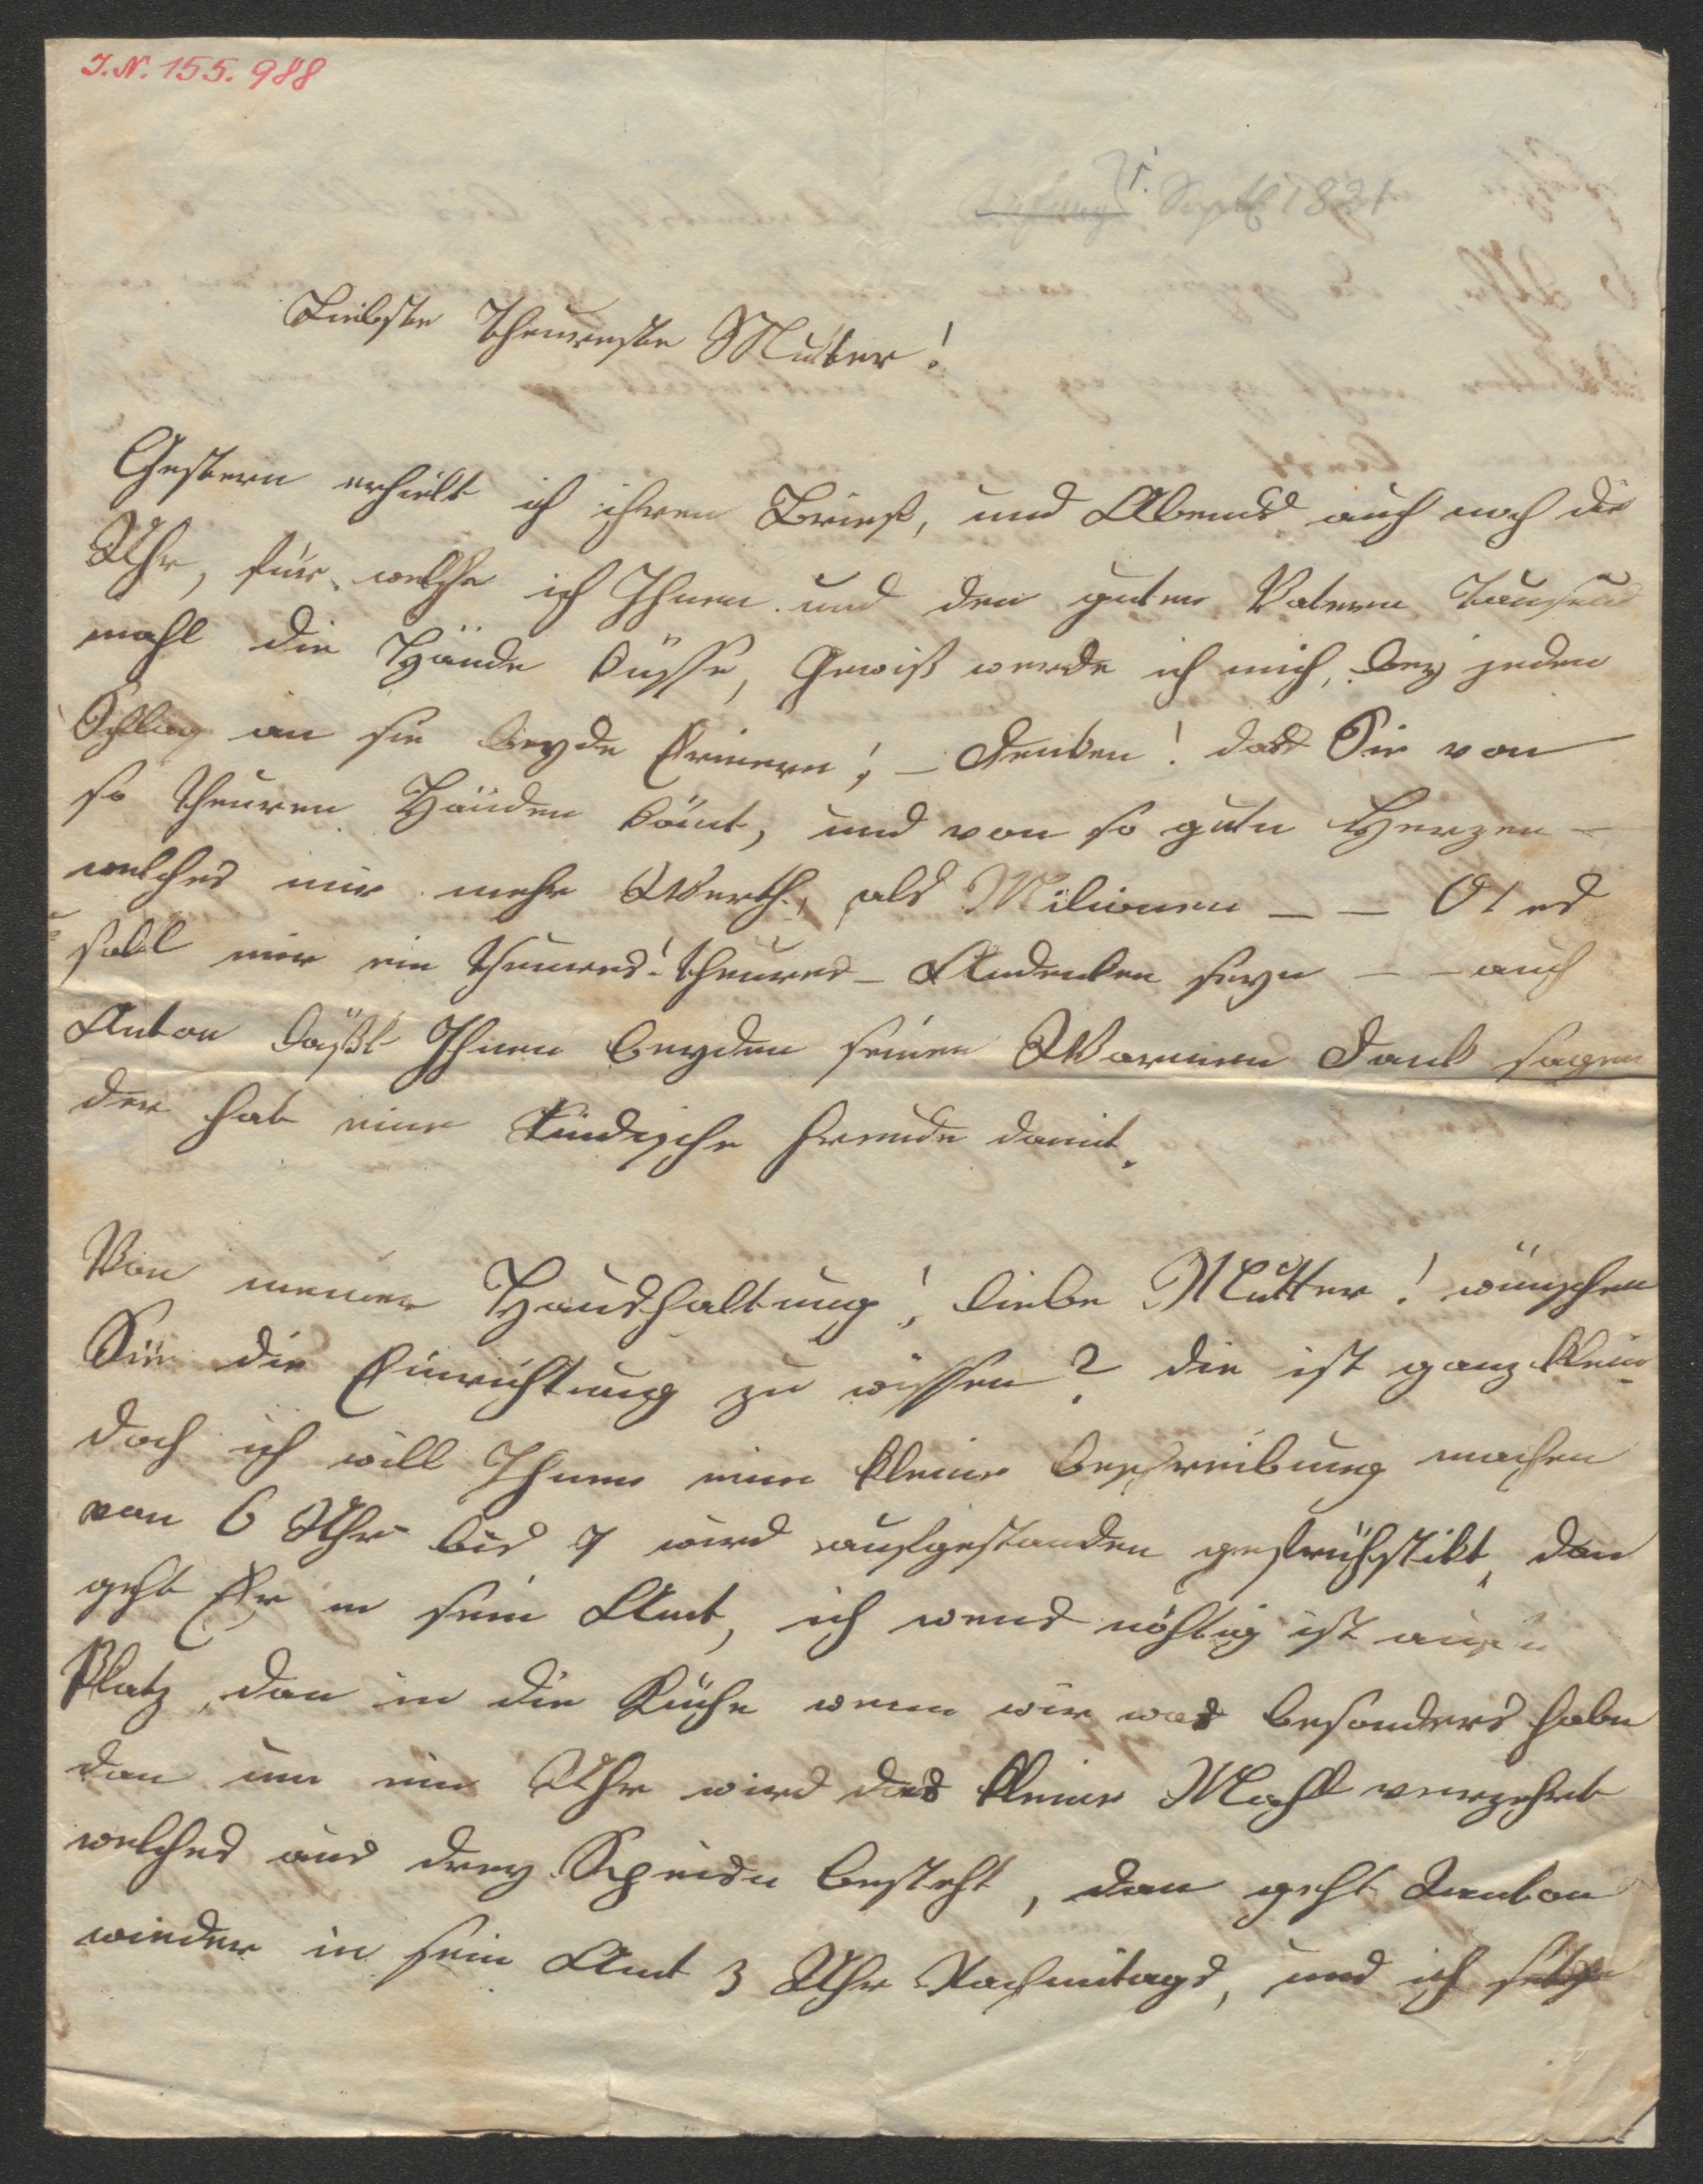 I.N. 155.988
1. Septb 1821
Liebste theureste Mutter!
Gestern erhielt ich ihren Brief, und Abends auch noch die
Uhr, für welche ich Ihnen und den guten Vatern Tausend
mahl die Hände küsse, Gewiß werde ich mich, bey jeden
Schlag an sie beyde Erinern! – denken! daß Sie von
so theuren Händen kömt, und von so guten Herzen –
welches mir mehr Werth, als Milionen – – O! es
soll mir ein theures! theures – Andenken seyn – – auch
Anton läßt Ihnen beyden seinen Warmen Dank sagen
der hat eine Kindische freude damit.
Von meiner Haushaltung! liebe Mutter! wünschen
Sie die Einrichtung zu wissen? die ist ganz klein
doch ich will Ihnen eine kleine beschreibung machen
von 6 Uhr bis 7 wird aufgestanden gefrühstükt, dan
geht Er in sein Amt, ich wens nöhtig ist auf'n
Platz, dan in die Küche wenn wir was besonders habn
dan um ein Uhr wird das kleine Mahl verzehrt
welches aus drey Speisn besteht, dan geht Anton
wieder in sein Amt 3 Uhr Nachmitags, und ich setze